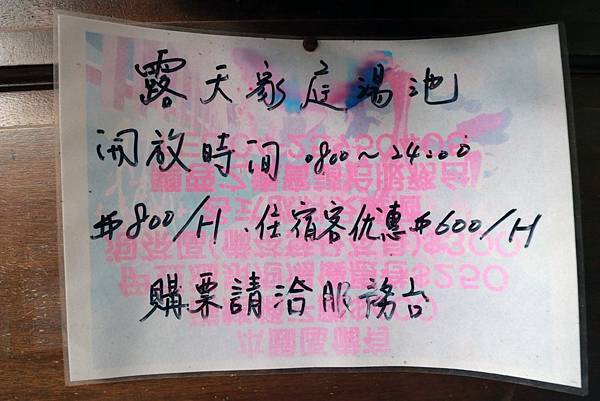 露天家庭湯池
開放時间 0800~24:00
#800/H、住宿客优惠#600/H
購票請洽服務台